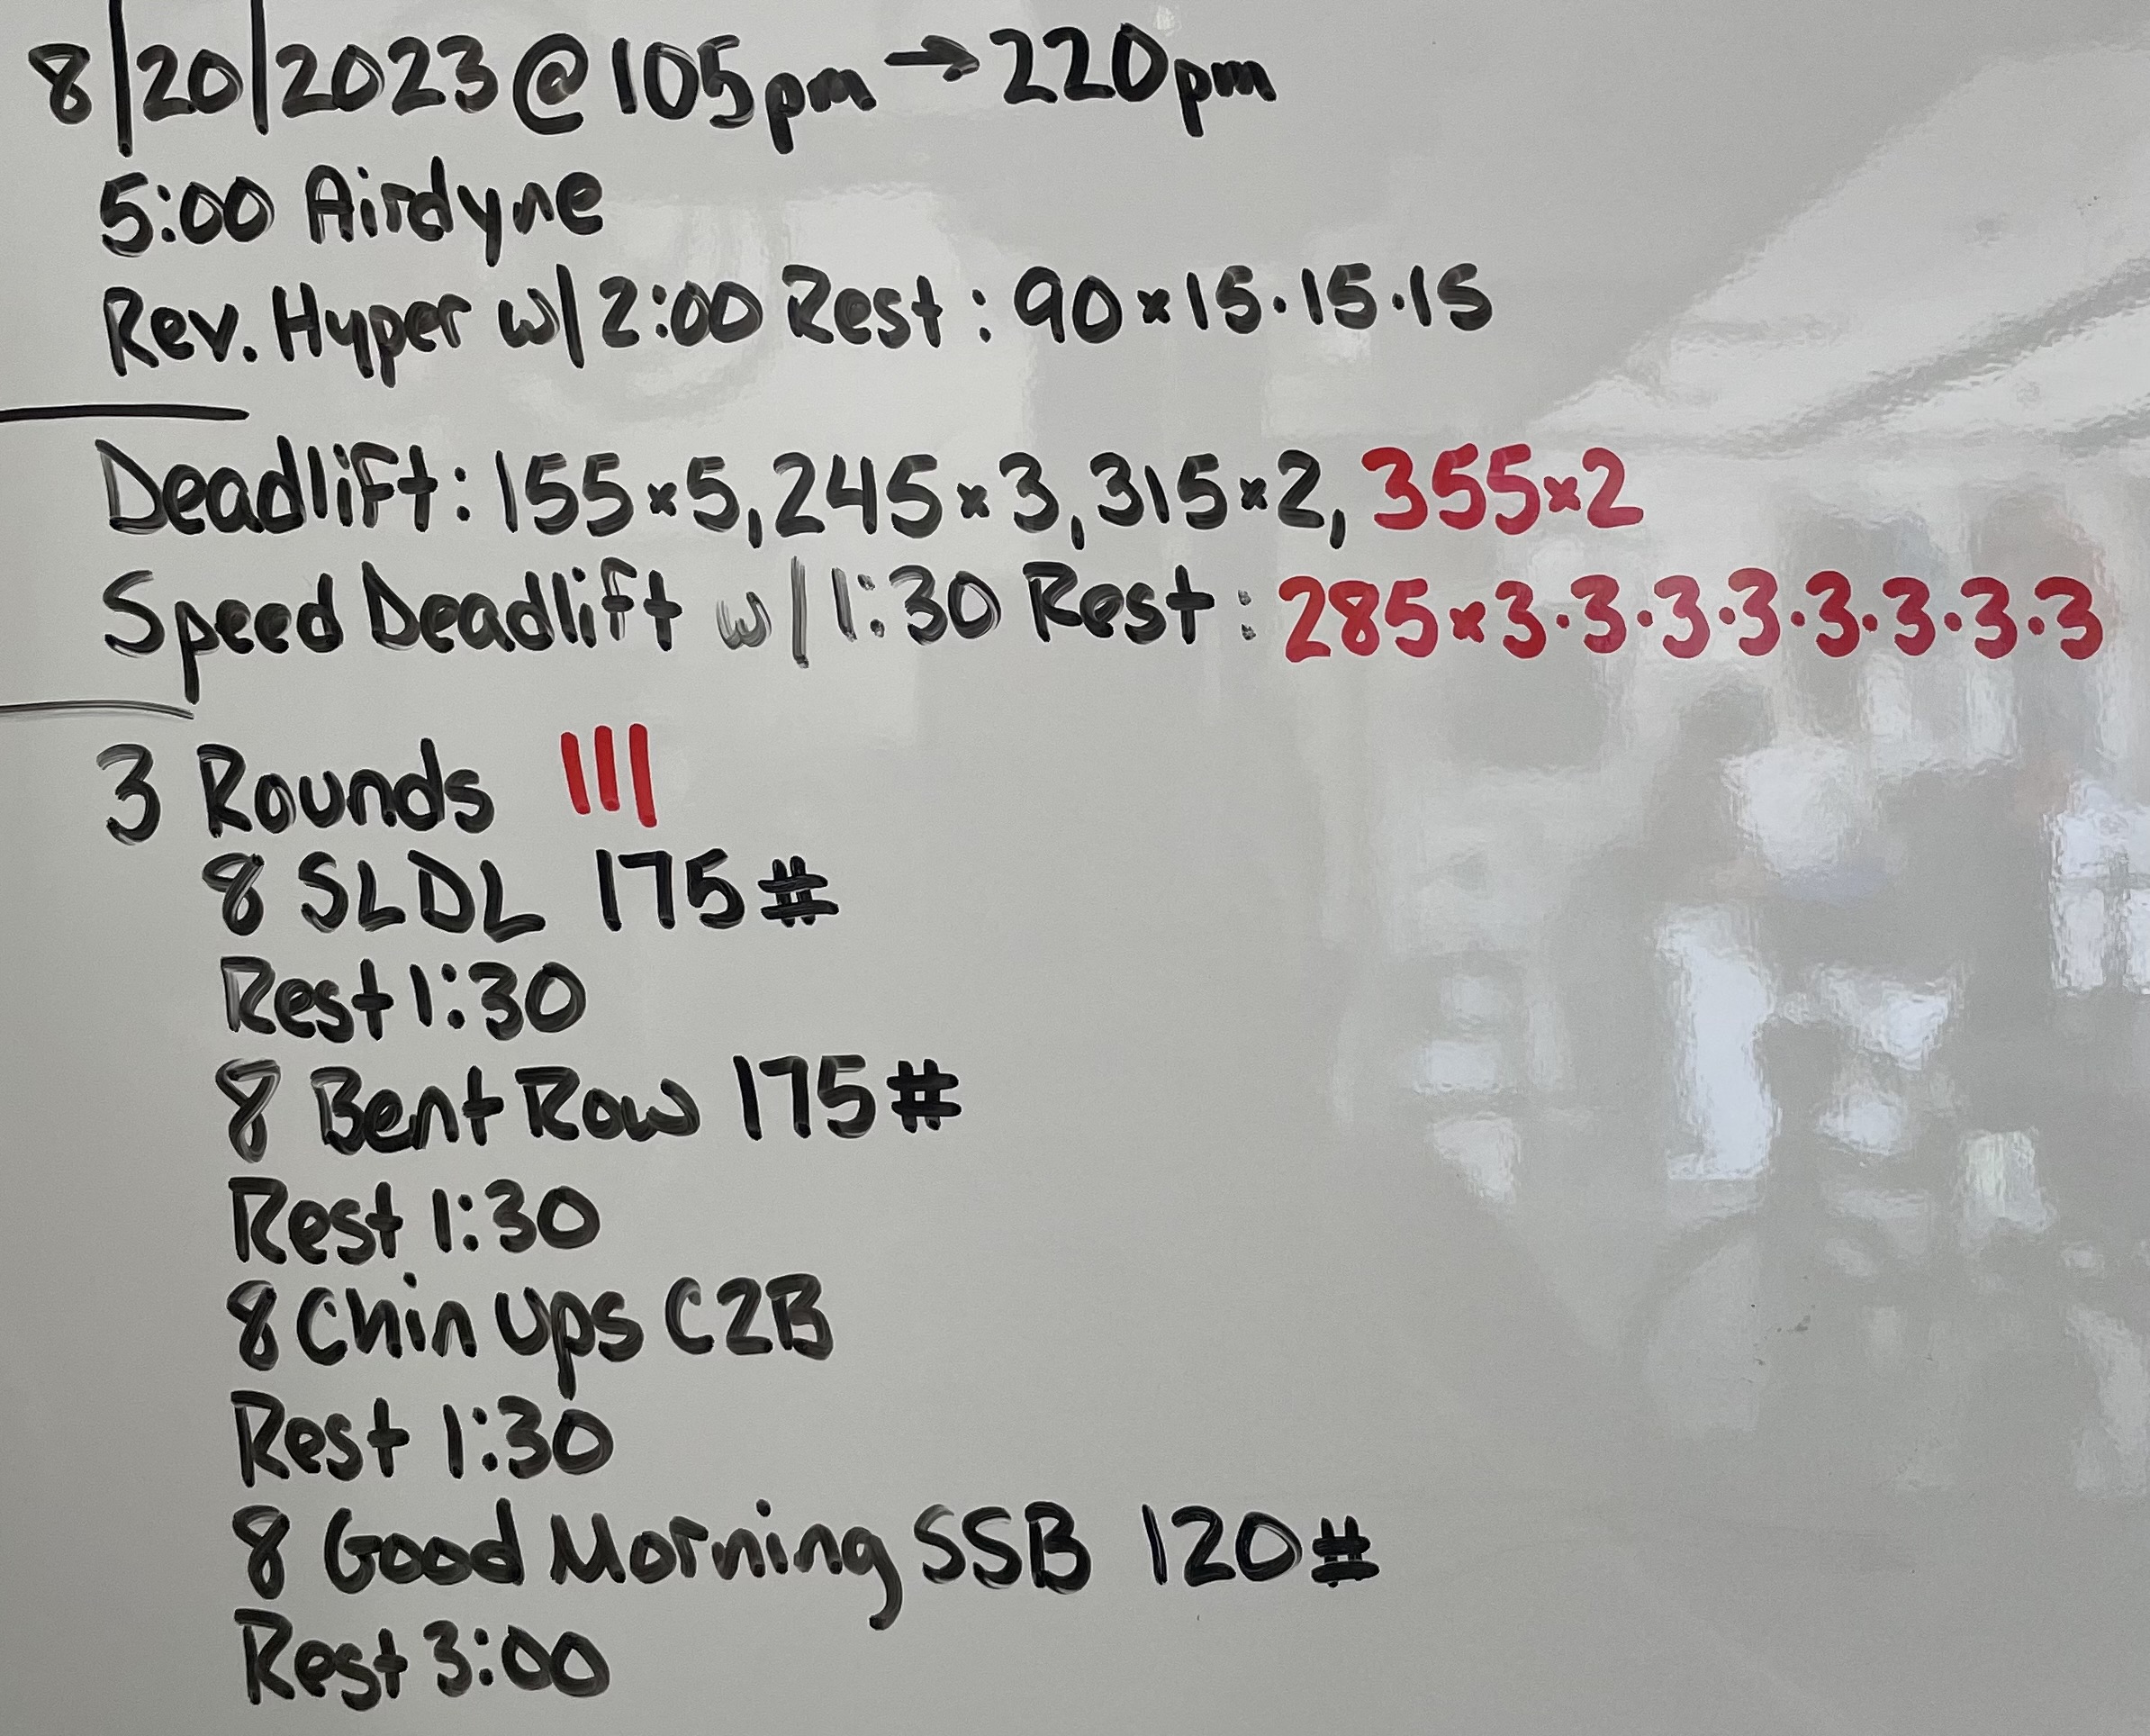 8/20/2023 @ 105pm → 220pm
5:00 Airdyne
Rev. Hyper w/ 2:00 Rest : 90 x 15·15·15
Deadlift: 155x5, 245x3, 315x2, 355x2
Speed Deadlift w/ 1:30 Rest : 285x3·3·3·3·3·3·3·3
3 Rounds |||
8 SLDL 175#
Rest 1:30
8 Bent Row 175#
Rest 1:30
8 Chin Ups C2B
Rest 1:30
8 Good Morning SSB 120#
Rest 3:00